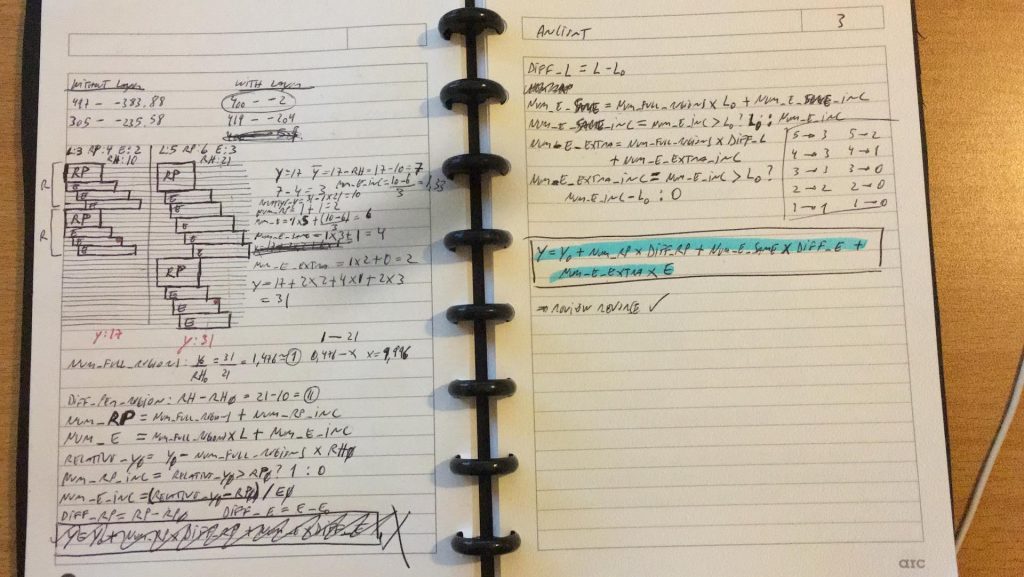 WITHOUT Layer
WITH Layer
497 -- -383.88
400 -- -2
305 -- -235.58
419 -- -204
L:3 RP:4 E:2
RH:10
L:5 RP:6 E:3
RH:21
R
R
RP
E
E
RP
E
E
RP
E
E
RP
E
E
y=17
7-4=3
= 1x3+1 = 4
NUM_E_EXTRA = 1x2+0=2
y=17+2x2+4x1+2x3
=31
y:17
y:31
1 — 21
NUM_FULL_REGIONS: = 31/21 = 1,476 = 1 0,476 - x x=9,996
DIFF_PER_REGION: RH-RH0 = 21-10 = 11
NUM_RP = NUM_FULL_REGION + NUM_RP_INC
NUM_E = NUM_FULL_REGIONS x L + NUM_E_INC
RELATIVE_Y0 = Y0 - NUM_FULL_REGIONS x RH0
NUM_RP_INC = RELATIVE_Y0 > RP0 ? 1 : 0
NUM_E_INC = (RELATIVE_Y0 - RP0) / E0
DIFF_RP = RP-RP0 DIFF_E = E-E0
3
DIFF_L = L-L0
NUM_E_SAME = NUM_FULL_REGIONS x L0 + NUM_E_SAME_INC
NUM_E_SAME_INC = NUM_E_INC > L0 ? L0 : NUM_E_INC
NUM_E_EXTRA = NUM_FULL_REGIONS x DIFF_L
+ NUM_E_EXTRA_INC
NUM_E_EXTRA_INC = NUM_E_INC > L0 ?
NUM_E_INC - L0 : 0
5→3 5→2
4→3 4→1
3→3 3→0
2→2 2→0
1→1 1→0
Y = Y0 + NUM_RP x DIFF_RP + NUM_E_SAME x DIFF_E +
NUM_E_EXTRA x E
⇒ REVIEW REVERSE ✓
arc